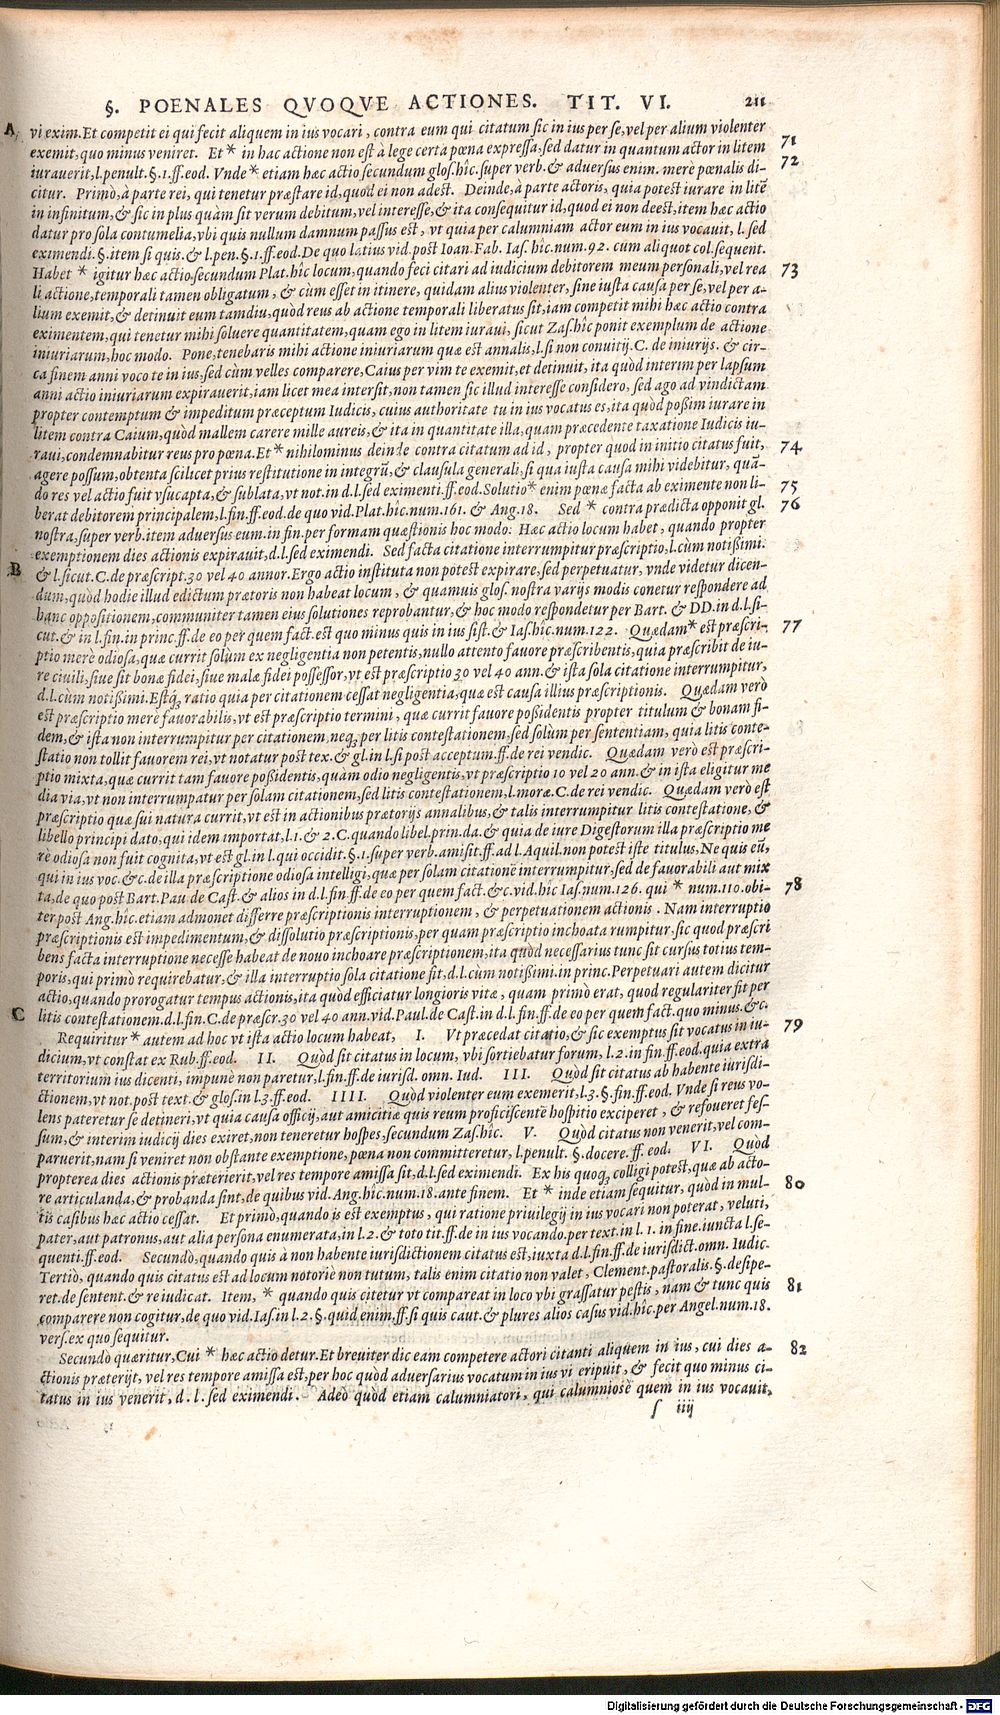 §. POENALES QVOQVE ACTIONES. TIT. VI. 211
A vi exim. Et competit ei qui fecit aliquem in ius vocari, contra eum qui citatum sic in ius per se, vel per alium violenter
exemit, quo minus veniret. Et * in hac actione non est à lege certa pœna expressa, sed datur in quantum actor in litem 71
iurauerit, l. penult. §. 1. ff. eod. Vnde * etiam hæc actio secundum glos. hîc. super verb. & aduersus enim. merè pœnalis di- 72
citur. Primò, à parte rei, qui tenetur præstare id, quod ei non adest. Deinde, à parte actoris, quia potest iurare in litē
in infinitum, & sic in plus quàm sit verum debitum, vel interesse, & ita consequitur id, quod ei non deest, item hæc actio
datur pro sola contumelia, vbi quis nullum damnum passus est, vt quia per calumniam actor eum in ius vocauit, l. sed
eximendi. §. item si quis. & l. pen. §. 1. ff. eod. De quo latius vid. post Ioan. Fab. Ias. hîc. num. 92. cum aliquot col. sequent.
Habet * igitur hæc actio secundum Plat. hîc locum, quando feci citari ad iudicium debitorem meum personali, vel rea 73
li actione, temporali tamen obligatum, & cùm esset in itinere, quidam alius violenter, sine iusta causa per se, vel per a-
lium exemit, & detinuit eum tamdiu, quòd reus ab actione temporali liberatus sit, iam competit mihi hæc actio contra
eximentem, qui tenetur mihi soluere quantitatem, quam ego in litem iuraui, sicut Zas. hîc ponit exemplum de actione
iniuriarum, hoc modo. Pone, tenebaris mihi actione iniuriarum quæ est annalis, l. si non conuitij. C. de iniurijs. & cir-
ca finem anni voco te in ius, sed cùm velles comparere, Caius per vim te exemit, et detinuit, ita quòd interim per lapsum
anni actio iniuriarum expirauerit, iam licet mea intersit, non tamen sic illud interesse considero, sed ago ad vindictam
propter contemptum & impeditum præceptum Iudicis, cuius authoritate tu in ius vocatus es, ita quòd possim iurare in
litem contra Caium, quòd mallem carere mille aureis, & ita in quantitate illa, quam præcedente taxatione Iudicis iu-
raui, condemnabitur reus pro pœna. Et * nihilominus deinde contra citatum ad id, propter quod in initio citatus fuit, 74
agere possum, obtenta scilicet prius restitutione in integrū, & clausula generali, si qua iusta causa mihi videbitur, quā-
do res vel actio fuit vsucapta, & sublata, vt not. in d. l. sed eximenti. ff. eod. Solutio * enim pœnæ facta ab eximente non li- 75
berat debitorem principalem, l. fin. ff. eod. de quo vid. Plat. hîc. num. 161. & Ang. 18. Sed * contra prædicta opponit gl. 76
nostra, super verb. item aduersus eum. in fin. per formam quæstionis hoc modo: Hæc actio locum habet, quando propter
exemptionem dies actionis expirauit, d. l. sed eximendi. Sed facta citatione interrumpitur præscriptio, l. cùm notissimi.
B & l. sicut. C. de præscript. 30 vel 40 annor. Ergo actio instituta non potest expirare, sed perpetuatur, vnde videtur dicen-
dum, quòd hodie illud edictum prætoris non habeat locum, & quamuis glos. nostra varijs modis conetur respondere ad
hanc oppositionem, communiter tamen eius solutiones reprobantur, & hoc modo respondetur per Bart. & DD. in d. l. si-
cut. & in l. fin. in princ. ff. de eo per quem fact. est quo minus quis in ius sist. & Ias. hîc. num. 122. Quædam * est præscri- 77
ptio merè odiosa, quæ currit solùm ex negligentia non petentis, nullo attento fauore præscribentis, quia præscribit de iu-
re ciuili, siue sit bonæ fidei, siue malæ fidei possessor, vt est præscriptio 30 vel 40 ann. & ista sola citatione interrumpitur,
d. l. cùm notissimi. Estq́ꝫ ratio quia per citationem cessat negligentia, quæ est causa illius præscriptionis. Quædam verò
est præscriptio merè fauorabilis, vt est præscriptio termini, quæ currit fauore possidentis propter titulum & bonam fi-
dem, & ista non interrumpitur per citationem, neqꝫ per litis contestationem, sed solùm per sententiam, quia litis conte-
statio non tollit fauorem rei, vt notatur post tex. & gl. in l. si post acceptum. ff. de rei vendic. Quædam verò est præscri-
ptio mixta, quæ currit tam fauore possidentis, quàm odio negligentis, vt præscriptio 10 vel 20 ann. & in ista eligitur me
dia via, vt non interrumpatur per solam citationem, sed litis contestationem, l. moræ. C. de rei vendic. Quædam verò est
præscriptio quæ sui natura currit, vt est in actionibus prætorijs annalibus, & talis interrumpitur litis contestatione, &
libello principi dato, qui idem importat, l. 1. & 2. C. quando libel. prin. da. & quia de iure Digestorum illa præscriptio me
rè odiosa non fuit cognita, vt est gl. in l. qui occidit. §. 1. super verb. amisit. ff. ad l. Aquil. non potest iste titulus, Ne quis eū,
qui in ius voc. &c. de illa præscriptione odiosa intelligi, quæ per solam citationē interrumpitur, sed de fauorabili aut mix
ta, de quo post Bart. Pau. de Cast. & alios in d. l. fin. ff. de eo per quem fact. &c. vid. hîc Ias. num. 126. qui * num. 110. obi- 78
ter post Ang. hîc. etiam admonet differre præscriptionis interruptionem, & perpetuationem actionis. Nam interruptio
præscriptionis est impedimentum, & dissolutio præscriptionis, per quam præscriptio inchoata rumpitur, sic quod præscri
bens facta interruptione necesse habeat de nouo inchoare præscriptionem, ita quòd necessarius tunc sit cursus totius tem-
poris, qui primò requirebatur, & illa interruptio sola citatione fit, d. l. cùm notissimi. in princ. Perpetuari autem dicitur
actio, quando prorogatur tempus actionis, ita quòd efficiatur longioris vitæ, quam primò erat, quod regulariter fit per
C litis contestationem. d. l. fin. C. de præscr. 30 vel 40 ann. vid. Paul. de Cast. in d. l. fin. ff. de eo per quem fact. quo minus. &c.
Requiritur * autem ad hoc vt ista actio locum habeat, I. Vt præcedat citatio, & sic exemptus sit vocatus in iu- 79
dicium, vt constat ex Rub. ff. eod. II. Quòd sit citatus in locum, vbi sortiebatur forum, l. 2. in fin. ff. eod. quia extra
territorium ius dicenti, impunè non paretur, l. fin. ff. de iurisd. omn. Iud. III. Quòd sit citatus ab habente iurisdi-
ctionem, vt not. post text. & glos. in l. 3. ff. eod. IIII. Quòd violenter eum exemerit, l. 3. §. fin. ff. eod. Vnde si reus vo-
lens pateretur se detineri, vt quia causa officij, aut amicitiæ quis reum proficiscentē hospitio exciperet, & refoueret fes-
sum, & interim iudicij dies exiret, non teneretur hospes, secundum Zas. hîc. V. Quòd citatus non venerit, vel com-
paruerit, nam si veniret non obstante exemptione, pœna non committeretur, l. penult. §. docere. ff. eod. VI. Quòd
propterea dies actionis præterierit, vel res tempore amissa sit, d. l. sed eximendi. Ex his quoqꝫ colligi potest, quæ ab acto-
re articulanda, & probanda sint, de quibus vid. Ang. hîc. num. 18. ante finem. Et * inde etiam sequitur, quòd in mul- 80
tis casibus hæc actio cessat. Et primò, quando is est exemptus, qui ratione priuilegij in ius vocari non poterat, veluti,
pater, aut patronus, aut alia persona enumerata, in l. 2. & toto tit. ff. de in ius vocando. per text. in l. 1. in fine. iuncta l. se-
quenti. ff. eod. Secundò, quando quis à non habente iurisdictionem citatus est, iuxta d. l. fin. ff. de iurisdict. omn. Iudic.
Tertiò, quando quis citatus est ad locum notoriè non tutum, talis enim citatio non valet, Clement. pastoralis. §. desipe-
ret. de sentent. & re iudicat. Item, * quando quis citetur vt compareat in loco vbi grassatur pestis, nam & tunc quis 81
comparere non cogitur, de quo vid. Ias. in l. 2. §. quid enim. ff. si quis caut. & plures alios casus vid. hîc. per Angel. num. 18.
vers. ex quo sequitur.
Secundò quæritur, Cui * hæc actio detur. Et breuiter dic eam competere actori citanti aliquem in ius, cui dies a- 82
ctionis præterijt, vel res tempore amissa est, per hoc quòd aduersarius vocatum in ius vi eripuit, & fecit quo minus ci-
tatus in ius venerit, d. l. sed eximendi. Adeò quòd etiam calumniatori, qui calumniosè quem in ius vocauit,
ſ iiij
Digitalisierung gefördert durch die Deutsche Forschungsgemeinschaft - DFG